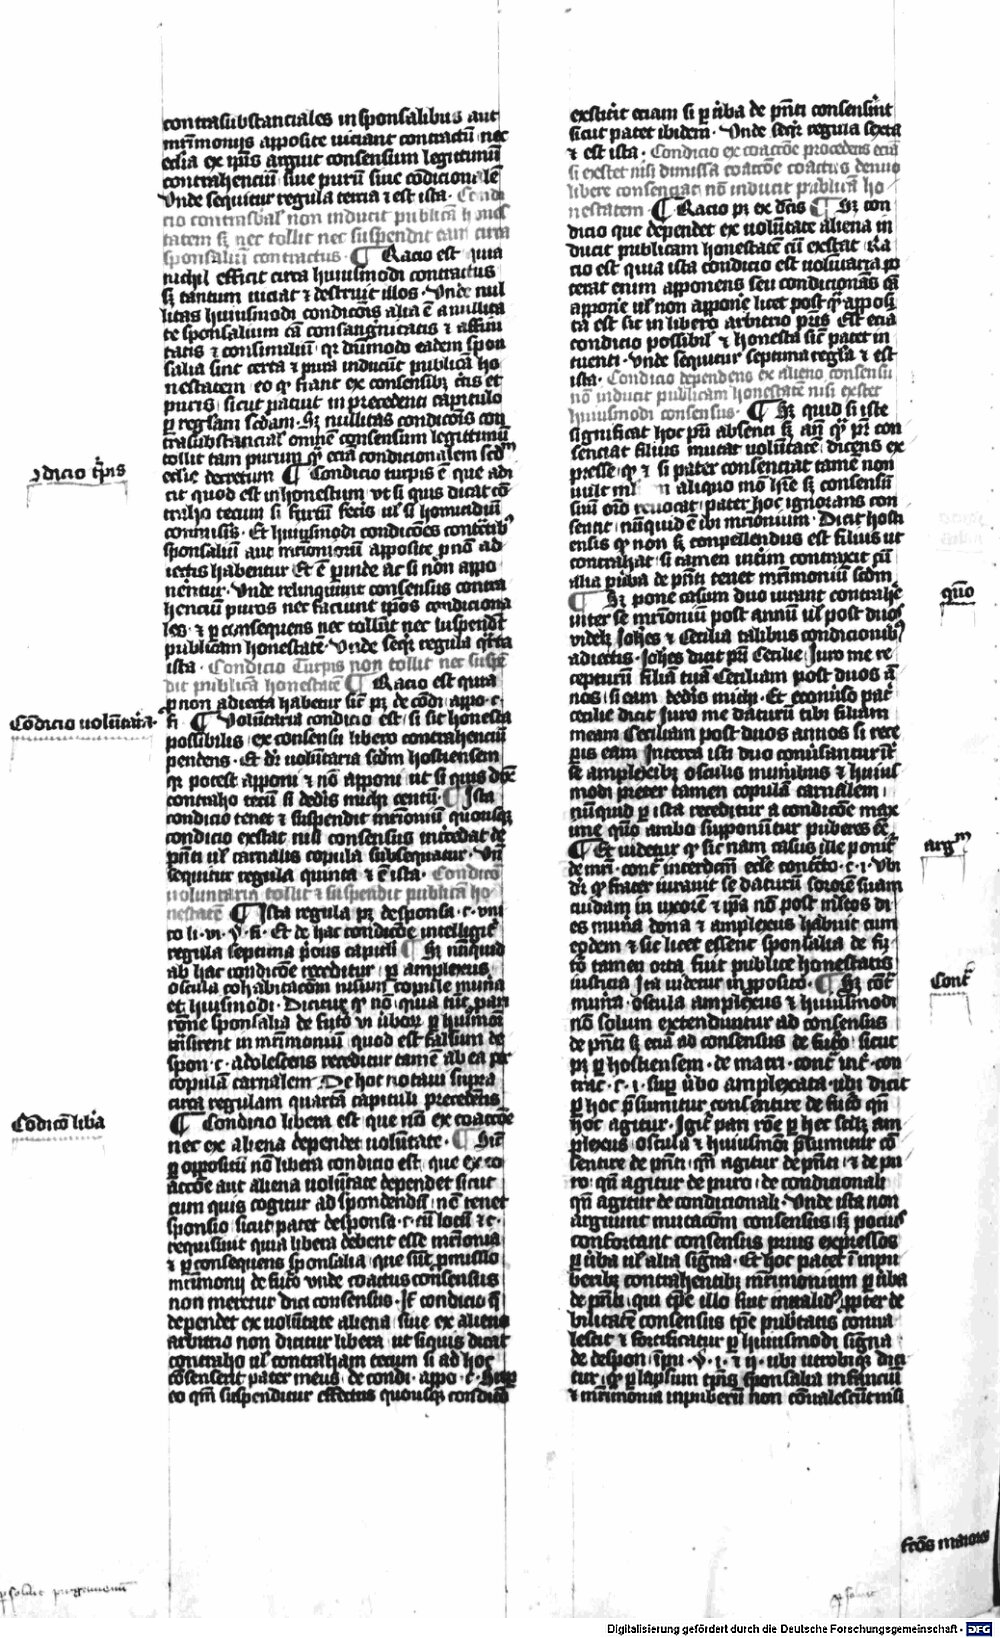 contrasubstanciales in sponsalibus aut
mr̄imonijs apposite viciant contractū nec
contrahenciū siue purū siue cōdicionalē
Vnde sequitur regula tercia ⁊ est ista · Condi
cio contrasbāl non inducit publicā hones
tatem sꝫ nec tollit nec suspendit eam circa
sponsaliū contractus · ¶ Racio est quia
nichil efficit circa huiusmodi contractus
sꝫ tantum viciat ⁊ destruit illos · Vnde nul
litas huiusmodi condicōis alia ē a nullita
te sponsalium cā consangnitatis ⁊ affini
tatis ⁊ consimiliū qꝛ dūmodo eadem spon
salia sint certa ⁊ pura inducūt publicā ho
nestatem eo qꝫ fiant ex consensibꝫ cīs et
puris sicut patuit in precedenti capitulo
ꝑ reglam scdam · Sꝫ nullitas condicōis con
trasubstancial omnē consensum legittimū
tollit tam purum qꝫ eciā condicionalem scdm
ecclie decretum ¶ Condicio turpis ē que adi
cit quod est inhonestum vt si quis dicat cō
traho tecum si furtū fecis ul si homicidiū
commisīs · Et huiusmodi condicōes contētibꝫ
sponsaliū aut mr̄imoniorū apposite ꝓ nō ad
iectis habentur Et ē perinde ac si nōn appo
nērentur · Vnde relinquunt consensus contra
henciū puros nec faciunt ip̄os condiciona
les · ⁊ ꝑ consequens nec tollūt nec suspendūt
publicam honestatē · Vnde seqꝛ regula qr̄ta
ista · Condicio Turpis non tollit nec suspē
dit publicā honestatē ¶ Racio est quia
ꝓ non adiecta habetur sic̄ pꝫ de cōdi appo · c ·
fi · ¶ Voluntaria condicio est si sit honesta
possibilis ex consensu libero contrahenciū
pendens · Et dr̄ volūtaria scdm hostiensem
qꝛ potest apponi ⁊ nō apponi ut si quis dicē
contraho tecū si dedīs michi centū · ¶ Ista
condicio tenet ⁊ suspendit mr̄imoniū quousqꝫ
condicio exstat nisi consensus intcedat de
pn̄ti ul carnalis copula subsequatur · Vn̄
sequitur regula quinta ⁊ ē ista · Condicō
voluntaria tollit ⁊ suspendit publicā ho
nestatē ¶ Ista regula pꝫ de sponsa · c · vni
co li · vi · Et de hac condicōe intelligit̄
regula septima p̄ous capituli ¶ Sꝫ nūquid
ab hac condicōe receditur ꝑ amplexus
oscula cohabitacōm nisum copule mūia
et huiusmodi · Dicitur qꝫ nō · quia tūc pari
rōne sponsalia de futō
trāsirent in mr̄imoniū quod est falsum de
spon · c · adolescens receditur tamē ab ea ꝑ
copulā carnalem De hoc notaui supra
circa regulam quartā capituli precedētis
¶ Condicio libera est que nō ex coactōe
nec ex aliena dependet volūtate · ¶ Sic̄
ꝑ oppositū nō libera condicio est que ex co
actōe aut aliena volūtate dependet sicut
cum quis cogitur ad spondendū nō tenet
sponsio sicut patet de sponsa · c · cū locū ⁊ c ·
requisiuit quia libera debent esse mr̄imonia
⁊ ꝑ consequens sponsalia que sūt ꝓmissio
mr̄imonij de futō vnde coactus consensus
non meretur dici consensus · Itē condicio q̄
dependet ex volūtate aliena siue ex alieno
arbitrio non dicitur libera ut si quis dicat
contraho ul contraham tecum si ad hoc
cōsenserit pater meus de condi · appo · c · Super
eo qm̄ suspenditur effectus quousqꝫ condicio
exstetit eciam si ꝑ v̄ba de pn̄ti consenserīt
sicut patet ibidem · Vnde seqꝛ regula sexta
⁊ est ista · Condicio ex coactōe procedens eciā
si exstet nisi dimissa coactōe coactus denuo
libere consenciat nō inducit publicā ho
nestatem · ¶ Racio pꝫ ex dc̄is ¶ Sꝫ con
dicio que dependet ex volūtate aliena in
ducit publicam honestatē cū exstat Ra
cio est quia ista condicio est voluntaria po
terat enim apponens seu condicionās eā
apponē ul non apponē licet post qꝫ apposi
ta est sit in libero arbitrio p̄ris Est eciā
condicio possibil ⁊ honesta sic̄ patet in
tuenti · Vnde sequitur septima regla ⁊ est
ista · Condicio dependens ex alieno consensu
nō inducit publicam honestatē nisi exstet
huiusmodi consensus · ¶ Sꝫ quid si iste
significat hoc pr̄i absenti sꝫ an̄ qꝫ pr̄ con
senciat filius mutat volūtatē dicens ex
presse qꝫ ⁊ si pater consenciat tamē non
uult in aliquo mō hr̄e sꝫ consensū
suū oīo reuocat pater hoc ignorans con
sentit nūquid ē ibi mr̄imonium · Dicit hosti
ensis qꝫ non sꝫ conpellendus est filius ut
contrahat si tamen intim contraxit cū
alia ꝑ v̄ba de pn̄ti tenet mr̄imoniū scdm
¶ Sꝫ pone casum duo iurant contrahē
inter se mr̄imoniū post annū ul post duos
videlꝫ Johēs ⁊ Cecilia talibus condicionibꝫ
adiectis · Johēs dicit pr̄i Cecilie Juro me re
cepturū filiā tuā Ceciliam post duos ā
nos si eam dedīs michi · Et econuso pat̄
cecilie dicit Juro me daturū tibi filiam
meam Ceciliam post duos annos si rece
ꝑis eam Interea isti duo conūsantur īt̄
se amplexibꝫ osculis munībus ⁊ huius
modi preter tamen copulā carnalem
nūquid ꝑ ista receditur a condicōe max
ime quō ambo supponūtur puberes ēē
¶ Et videtur qꝫ sic nam casus ille ponit̄
de mr̄i · cont̄ interdcm̄ eccle contcto · c · i · Vbi
dr̄ qꝫ frater iurauit se daturū sororē suam
cuidam in vxorē ⁊ ip̄a nō post m̄ltos di
es mūia dona ⁊ amplexus habuit cum
eodem ⁊ sic licet essent sponsalia de fu
tō tamen orta fuit publice honestatis
iusticia Ita videtur in ꝓposito · ¶ Sꝫ cōt̄
mūia oscula amplexus ⁊ huiusmodi
nō solum extenduntur ad consensus
de pn̄ti sꝫ eciā ad consensus de futō sicut
pꝫ ꝑ hostiensem · de matri · cont̄ int̄ · con
trac̄ · c · i · suꝑ v̄bo amplexata · ubi dicit
ꝑ hoc p̄sumitur consentire de futō qn̄
hoc agitur · Igit̄ pari rōe ꝑ hec scilꝫ am
plexus oscula ⁊ huiusmōi p̄sumitur cō
sentire de pn̄ti qn̄ agitur de pn̄ti ⁊ de pu
ro qn̄ agitur de puro de condicionali
qn̄ agitur de condicionali · Vnde ista non
arguunt mutacōm consensus sꝫ pocius
confortant consensus prius expressos
ꝑ v̄ba ul alia signa · Et hoc patet in inpu
beribꝫ contrahentibꝫ mr̄imonium ꝑ v̄ba
de pn̄ti qui tp̄e illo fuit inualidꝰ ꝓpter de
bilitatē consensus tp̄e pubertatis conua
lescit ⁊ fortificatur ꝑ huiusmodi signa
de despon īpu · c · i · ⁊ ij · ubi utrobiqꝫ dici
tur qꝫ ꝑ lapsum tp̄ris sponsalia infanciū
⁊ mr̄imonia inpuberū non cōualescūt nisi
ↄdicio tp̄ris
Cōdicio volūtār̄a
Cōdicō lib̄a
quō
argm
Cont̄
Digitalisierung gefördert durch die Deutsche Forschungsgemeinschaft - DFG